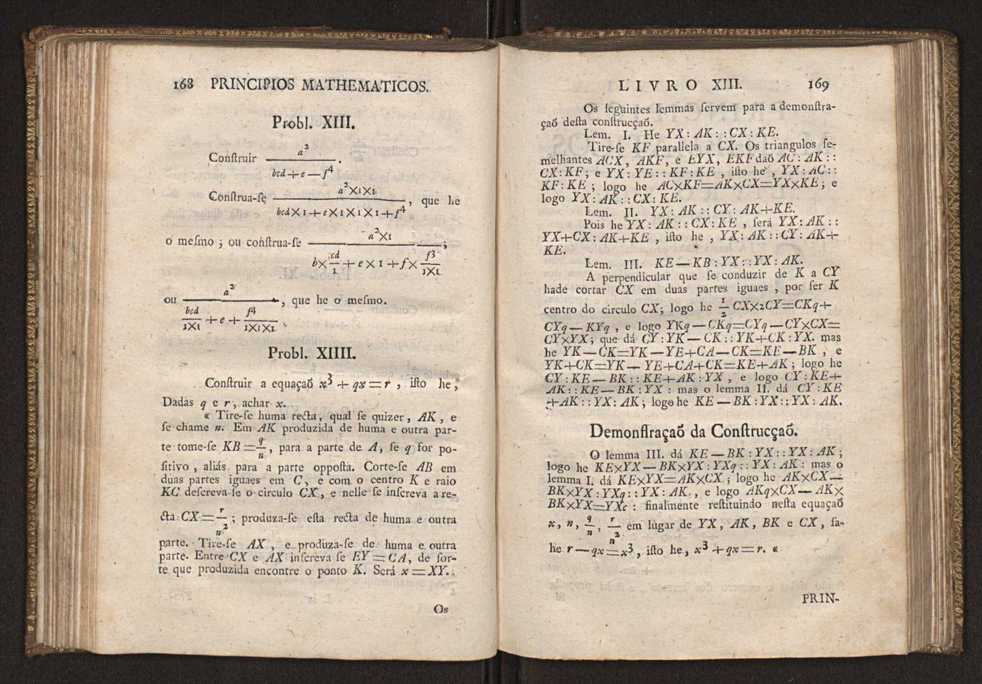 168 PRINCIPIOS MATHEMATICOS.
Probl. XIII.
Conſtruir a³ / bcd + e − f⁴ .
Conſtrua-ſe a²×1×1 / bcd×1 + e×1×1×1 + f⁴ , que he
o meſmo ; ou conſtrua-ſe a²×1 / b×cd/1 + e×1 + f×f³/1×1 ;
ou a² / bcd/1×1 + e + f⁴/1×1×1 , que he o meſmo.
Probl. XIIII.
Conſtruir a equaçaõ x³ + qx = r , iſto he,
Dadas q e r, achar x.
« Tire-ſe huma recta, qual ſe quizer, AK, e
ſe chame n. Em AK produzida de huma e outra par-
te tome-ſe KB = q/n, para a parte de A, ſe q for po-
ſitivo , aliás para a parte oppoſta. Corte-ſe AB em
duas partes iguaes em C, e com o centro K e raio
KC deſcreva-ſe o circulo CX, e nelle ſe inſcreva a re-
cta CX = r/n² ; produza-ſe eſta recta de huma e outra
parte. Tire-ſe AX , e produza-ſe de huma e outra
parte. Entre CX e AX inſcreva ſe EY = CA, de ſor-
te que produzida encontre o ponto K. Será x = XY.
Os
LIVRO XIII. 169
Os ſeguintes lemmas ſervem para a demonſtra-
çaõ deſta conſtrucçaõ.
Lem. I. He YX : AK : : CX : KE.
Tire-ſe KF parallela a CX. Os triangulos ſe-
melhantes ACX, AKF, e EYX, EKF daõ AC : AK : :
CX : KF ; e YX : YE : : KF : KE , iſto he , YX : AC : :
KF : KE ; logo he AC×KF=AK×CX=YX×KE ; e
logo YX : AK : : CX : KE.
Lem. II. YX : AK : : CY : AK+KE.
Pois he YX : AK : : CX : KE , ſerá YX : AK : :
YX+CX : AK+KE , iſto he , YX : AK : : CY : AK+
KE.
Lem. III. KE — KB : YX : : YX : AK.
A perpendicular que ſe conduzir de K a CY
hade cortar CX em duas partes iguaes , por ſer K
centro do circulo CX; logo he 1/2 CX×2CY=CKq+
CYq — KYq , e logo YKq — CKq=CYq — CY×CX=
CY×YX ; que dá CY : YK — CK : : YK+CK : YX. mas
he YK — CK=YK — YE+CA — CK=KE — BK , e
YK+CK=YK — YE+CA+CK=KE+AK ; logo he
CY : KE — BK : : KE+AK : YX , e logo CY : KE+
AK : : KE — BK : YX : mas o lemma II. dá CY : KE
+AK : : YX : AK ; logo he KE — BK : YX : : YX : AK.
Demonſtraçaõ da Conſtrucçaõ.
O lemma III. dá KE — BK : YX : : YX : AK ;
logo he KE×YX — BK×YX : YXq : : YX : AK : mas o
lemma I. dá KE×YX=AK×CX ; logo he AK×CX —
BK×YX : YXq : : YX : AK , e logo AKq×CX — AK×
BK×YX=YXc : finalmente reſtituindo neſta equaçaõ
x, n, q/n, r/n² em lugar de YX, AK, BK e CX, ſa-
he r — qx = x³ , iſto he, x³ + qx = r. «
PRIN-